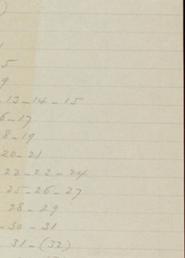 )
5
9
-13-14-15
6-17
8-19
20-21
22-22-24
25-26-27
28-29
-30-31
31-(32)